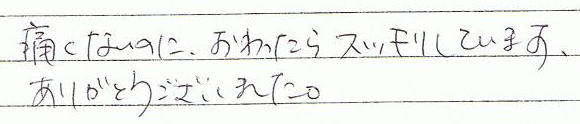 痛くないのに、おわったらスッキリしています、
ありがとうございました。